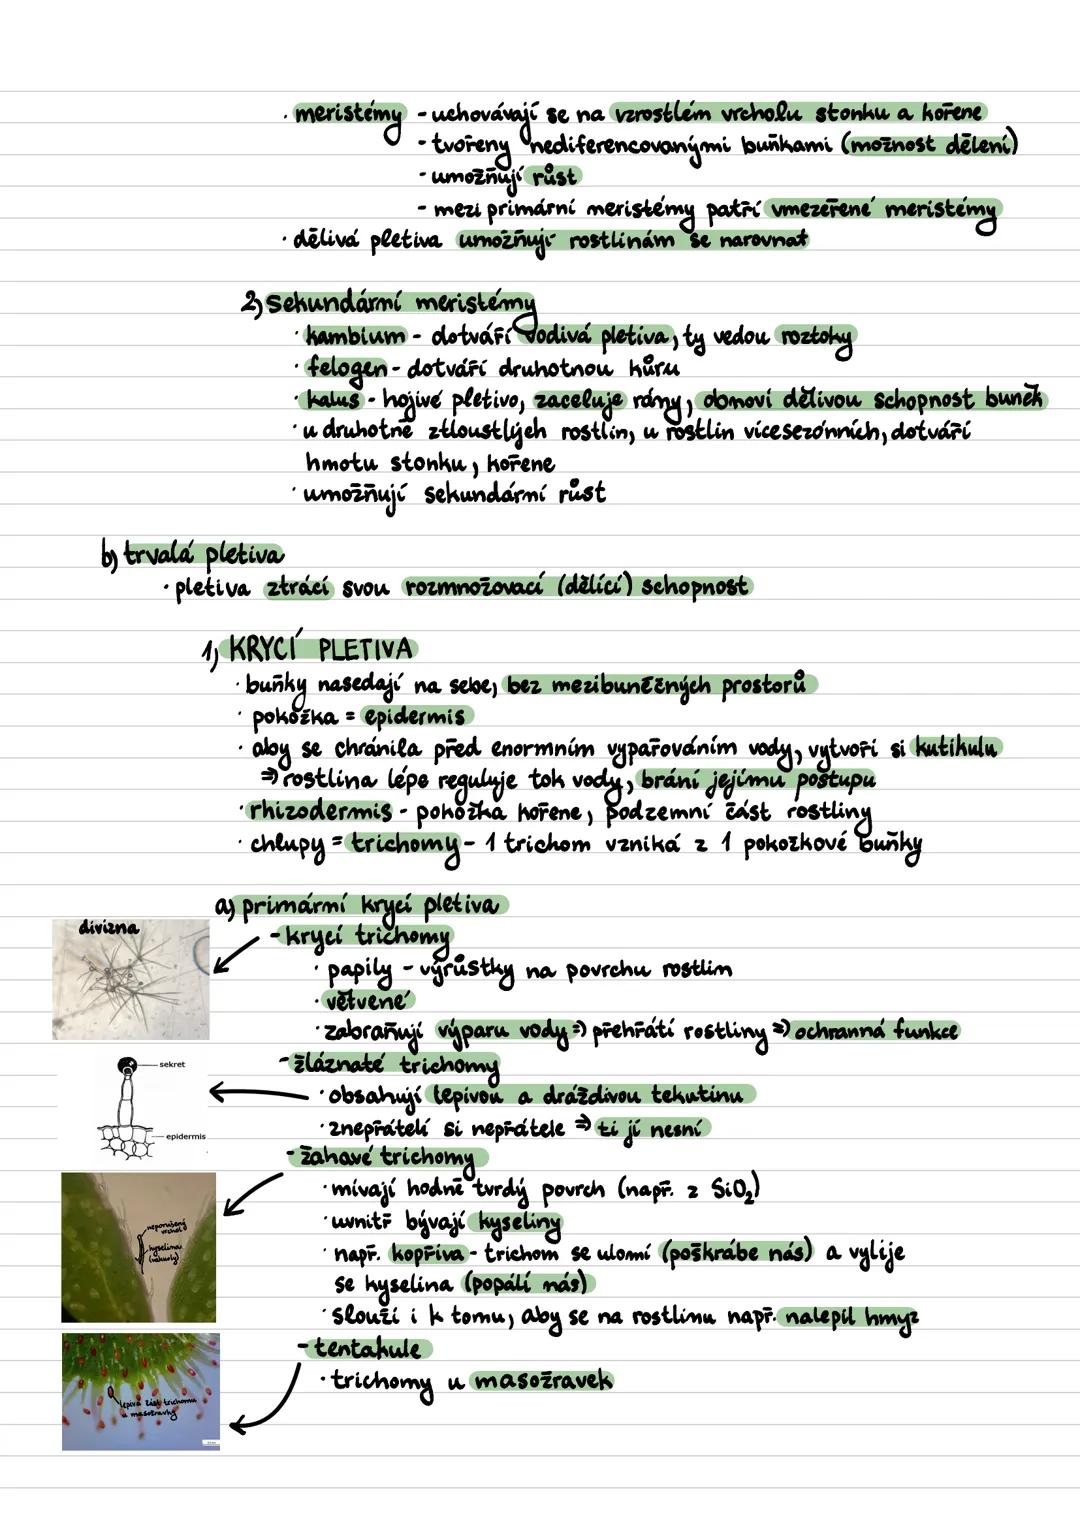 · meristémy - uchovávají se na vzrostlém vrcholu stonku a kořene
- tvořeny nediferencovanými buňkami (možnost dělení)
- umožňují růst
- mezi primární meristémy patří vmezeřené meristémy
· dělivá pletiva umožňují rostlinám se narovnat
2) sekundární meristémy
· kambium - dotváří vodivá pletiva, ty vedou roztoky
· felogen - dotváří druhotnou kůru
· kalus - hojivé pletivo, zaceluje rány, obnoví dělivou schopnost buněk
· u druhotně ztloustlých rostlin, u rostlin vícesezónních, dotváří
hmotu stonku, kořene
· umožňují sekundární růst
b) trvalá pletiva
· pletiva ztrácí svou rozmnožovací (dělící) schopnost
1) KRYCÍ PLETIVA
· buňky nasedají na sebe, bez mezibuněčných prostorů
· pokožka = epidermis
· aby se chránila před enormním vypařováním vody, vytvoří si kutikulu
⇒ rostlina lépe reguluje tok vody, brání jejímu postupu
· rhizodermis - pokožka kořene, podzemní část rostliny
· chlupy = trichomy - 1 trichom vzniká z 1 pokožkové buňky
a) primární krycí pletiva
divizna
- krycí trichomy
· papily - výrůstky na povrchu rostlin
· větvené
· zabraňují výparu vody ⇒ přehřátí rostliny ⇒ ochranná funkce
- žláznaté trichomy
sekret
· obsahují lepivou a dráždivou tekutinu
· znepřátelí si nepřátele ⇒ ti jí nesní
epidermis
- žahavé trichomy
· mívají hodně tvrdý povrch (např. z SiO₂)
· uvnitř bývají kyseliny
neporušený
vrchol
kyselina
(vakuoly)
· např. kopřiva - trichom se ulomí (poškrábe nás) a vylije
se kyselina (popálí nás)
· slouží i k tomu, aby se na rostlinu např. nalepil hmyz
- tentakule
· trichomy u masožravek
lepivá část trichomu
u masožravky